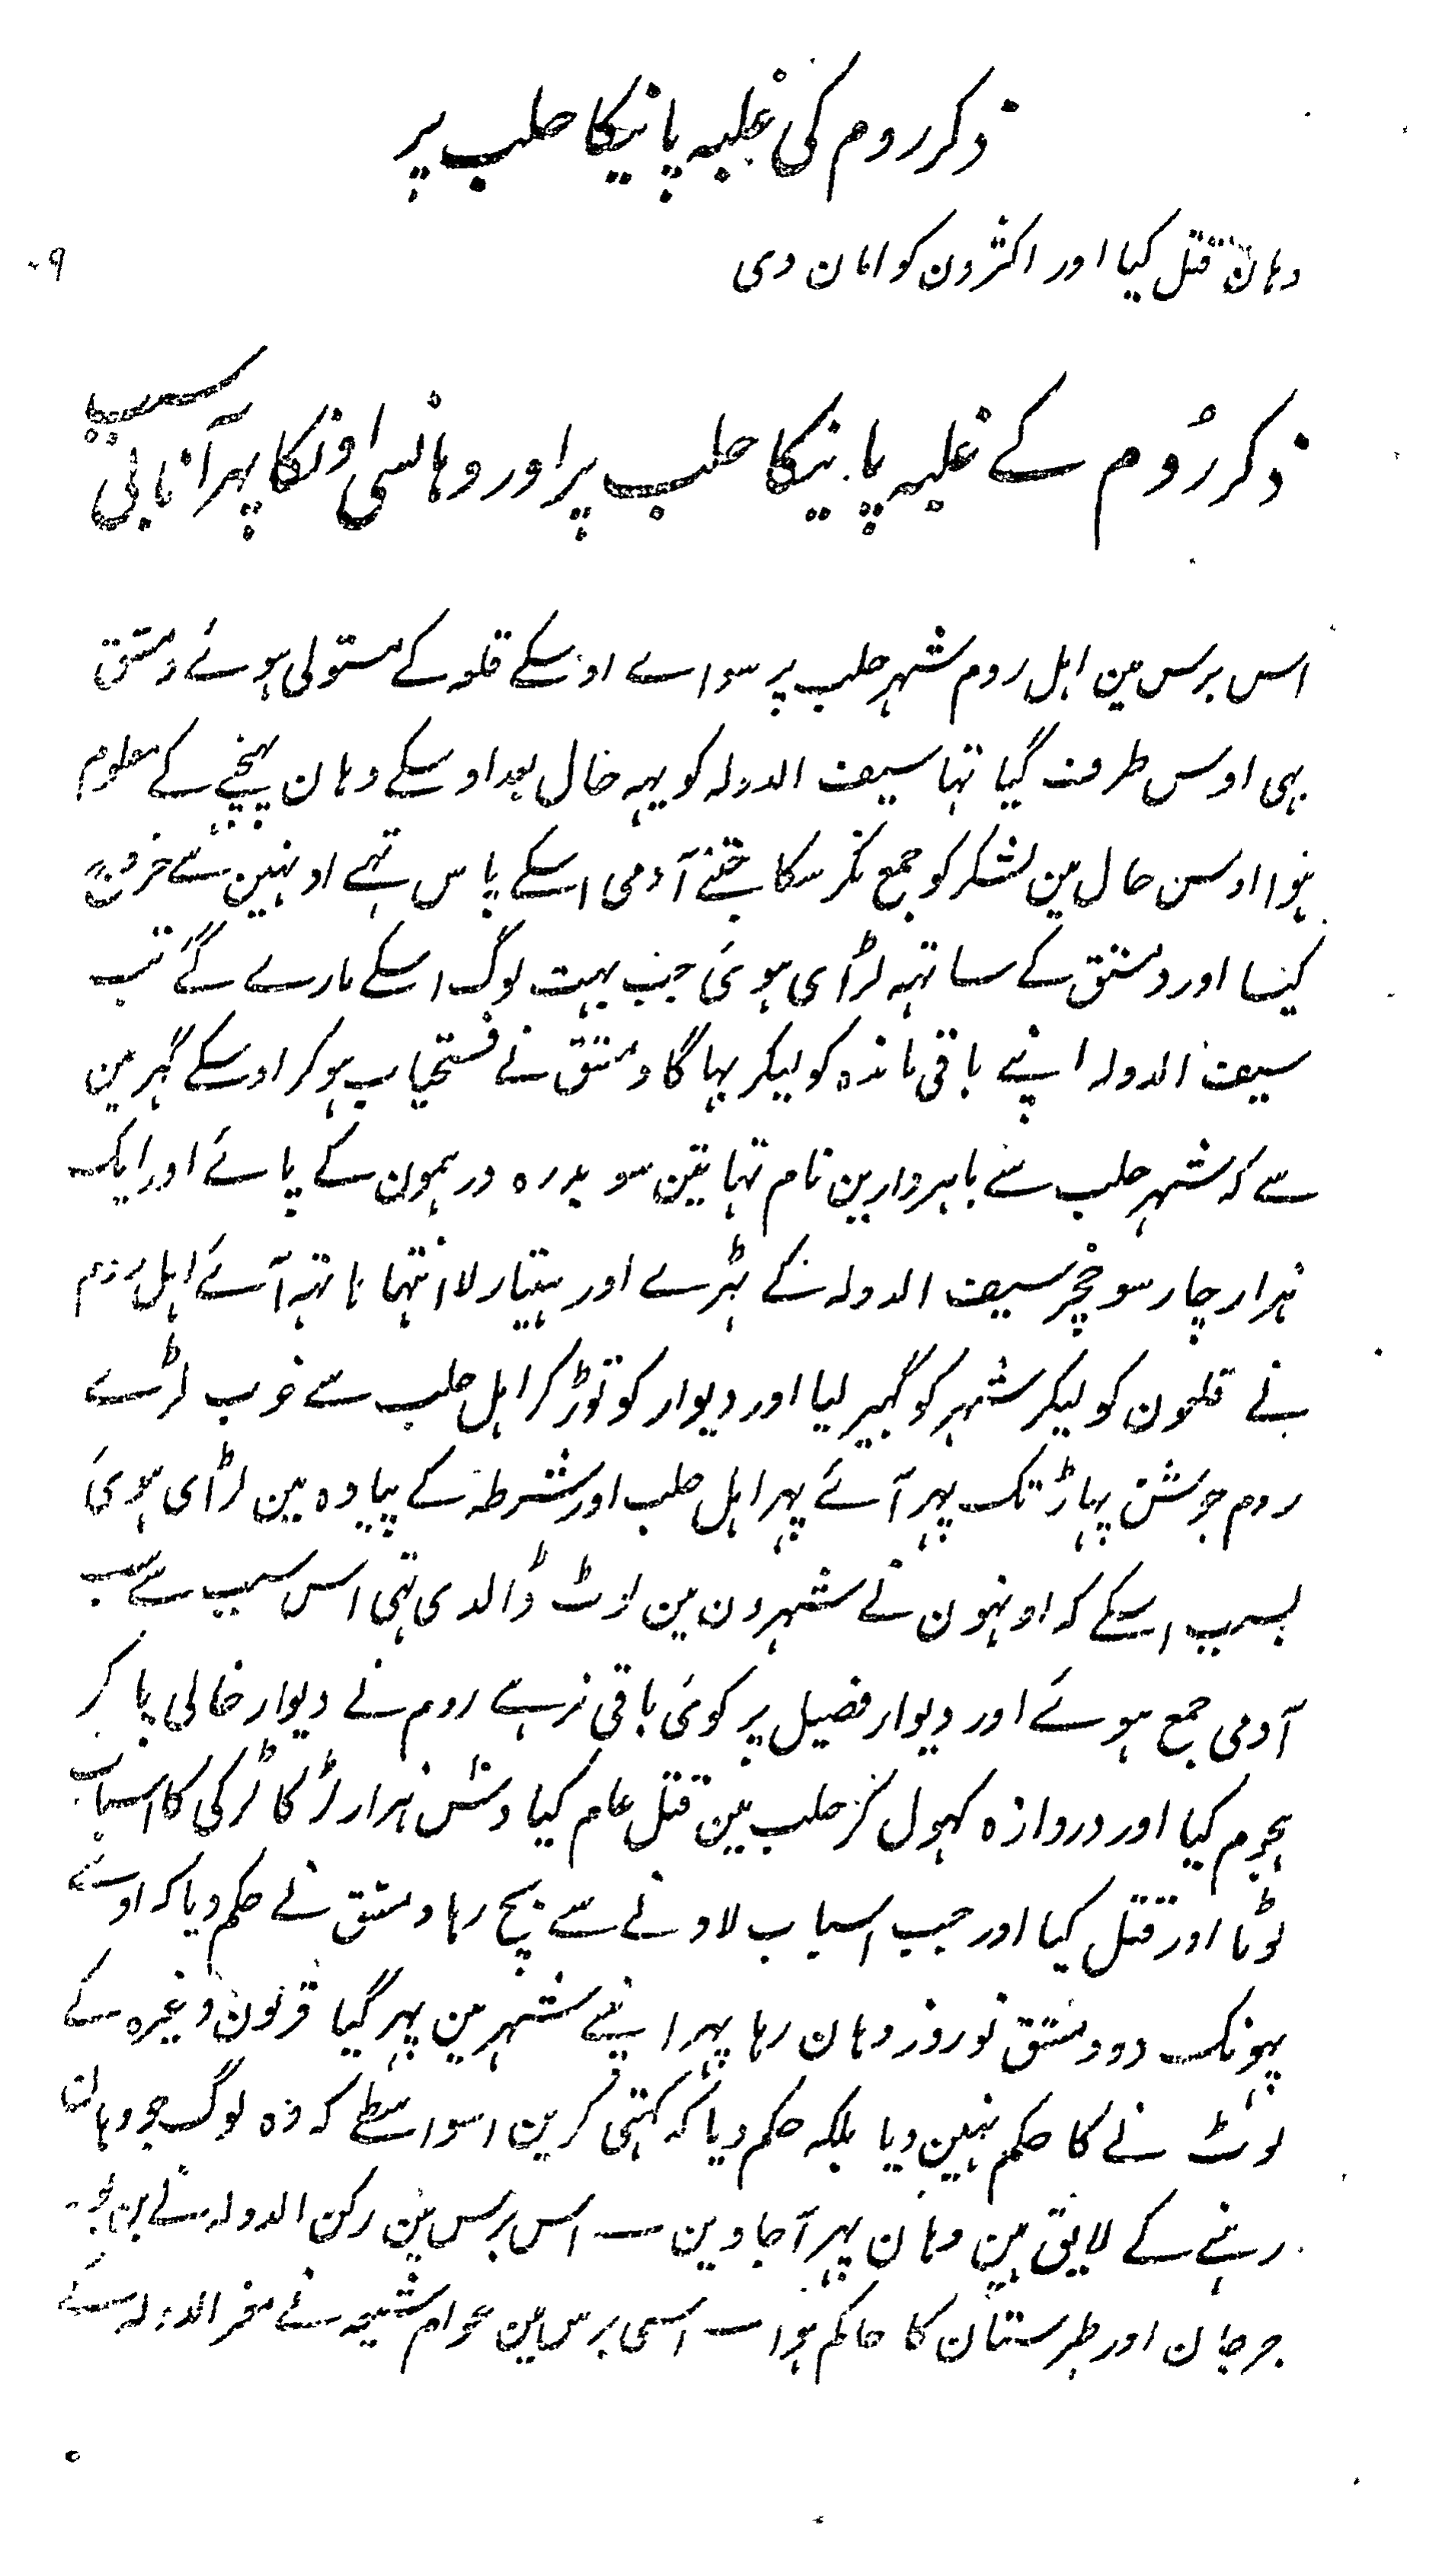 ذکر روم کی غلبہ پانیکا حلب پر
وہان قتل کیا اور اکثرون کو امان دی
ذکر رُوم کے غلبہ پانیکا حلب پر اور وہانسی اونکا پہر آنا بی سبب
اس برس مین اہل روم شہر حلب پر سواے اوسکے قلعہ کے مستولی ہوئے دمستق
بہی اوس طرف گیا تہا سیف الدولہ کو یہہ حال بعد اوسکے وہان پہنچے کے معلوم
ہوا اوس حال مین لشکر کو جمع نکر سکا جتنے آدمی اسکے پاس تہے اونہین سے خروج
کیا اور دمستق کے ساتہہ لڑای ہوئی جب بہت لوگ اسکے مارے گے تب
سیف الدولہ اپنے باقی ماندہ کو لیکر بہاگا دمستق نے فتحیاب ہو کر اوسکے گہر مین
سے کہ شہر حلب سے باہر دارین نام تہا تین سو بدرہ درہمون کے پائے اور ایک
ہزار چار سو خچر سیف الدولہ کے پڑے اور ہتیار لا انتہا ہاتہہ آئے اہل روم
نے قلعون کو لیکر شہر کو گہیر لیا اور دیوار کو توڑ کر اہل حلب سے خوب لڑے
روم جوشن پہاڑ تک پہر آئے پہر اہل حلب اور شرطہ کے پیادہ مین لڑای ہوئی
بسبب اسکے کہ اونہون نے شہرون مین لوٹ ڈالدی تہی اس سبب سے سب
آدمی جمع ہوئے اور دیوار فصیل پر کوئی باقی نرہے روم نے دیوار خالی پا کر
ہجوم کیا اور دروازہ کہول کر حلب مین قتل عام کیا دس ہزار لڑکا لڑکی کا اسباب
لوٹا اور قتل کیا اور جب اسباب لادنے سے بچ رہا دمستق نے حکم دیا کہ اوسے
پہونک دو دمستق نو روز وہان رہا پہر اپنے شہر مین پہر گیا قریون وغیرہ کے
لوٹ نے کا حکم نہین دیا بلکہ حکم دیا کہ کہتی کرین اسواسطے کہ وہ لوگ جو وہان
رہنے کے لایق ہین وہان پہر آجاوین ــ اس برس مین رکن الدولہ نے بن بویہ
جرجان اور طبرستان کا حاکم ہوا ــ اسی برس مین عوام شیعہ نے معز الدولہ کے